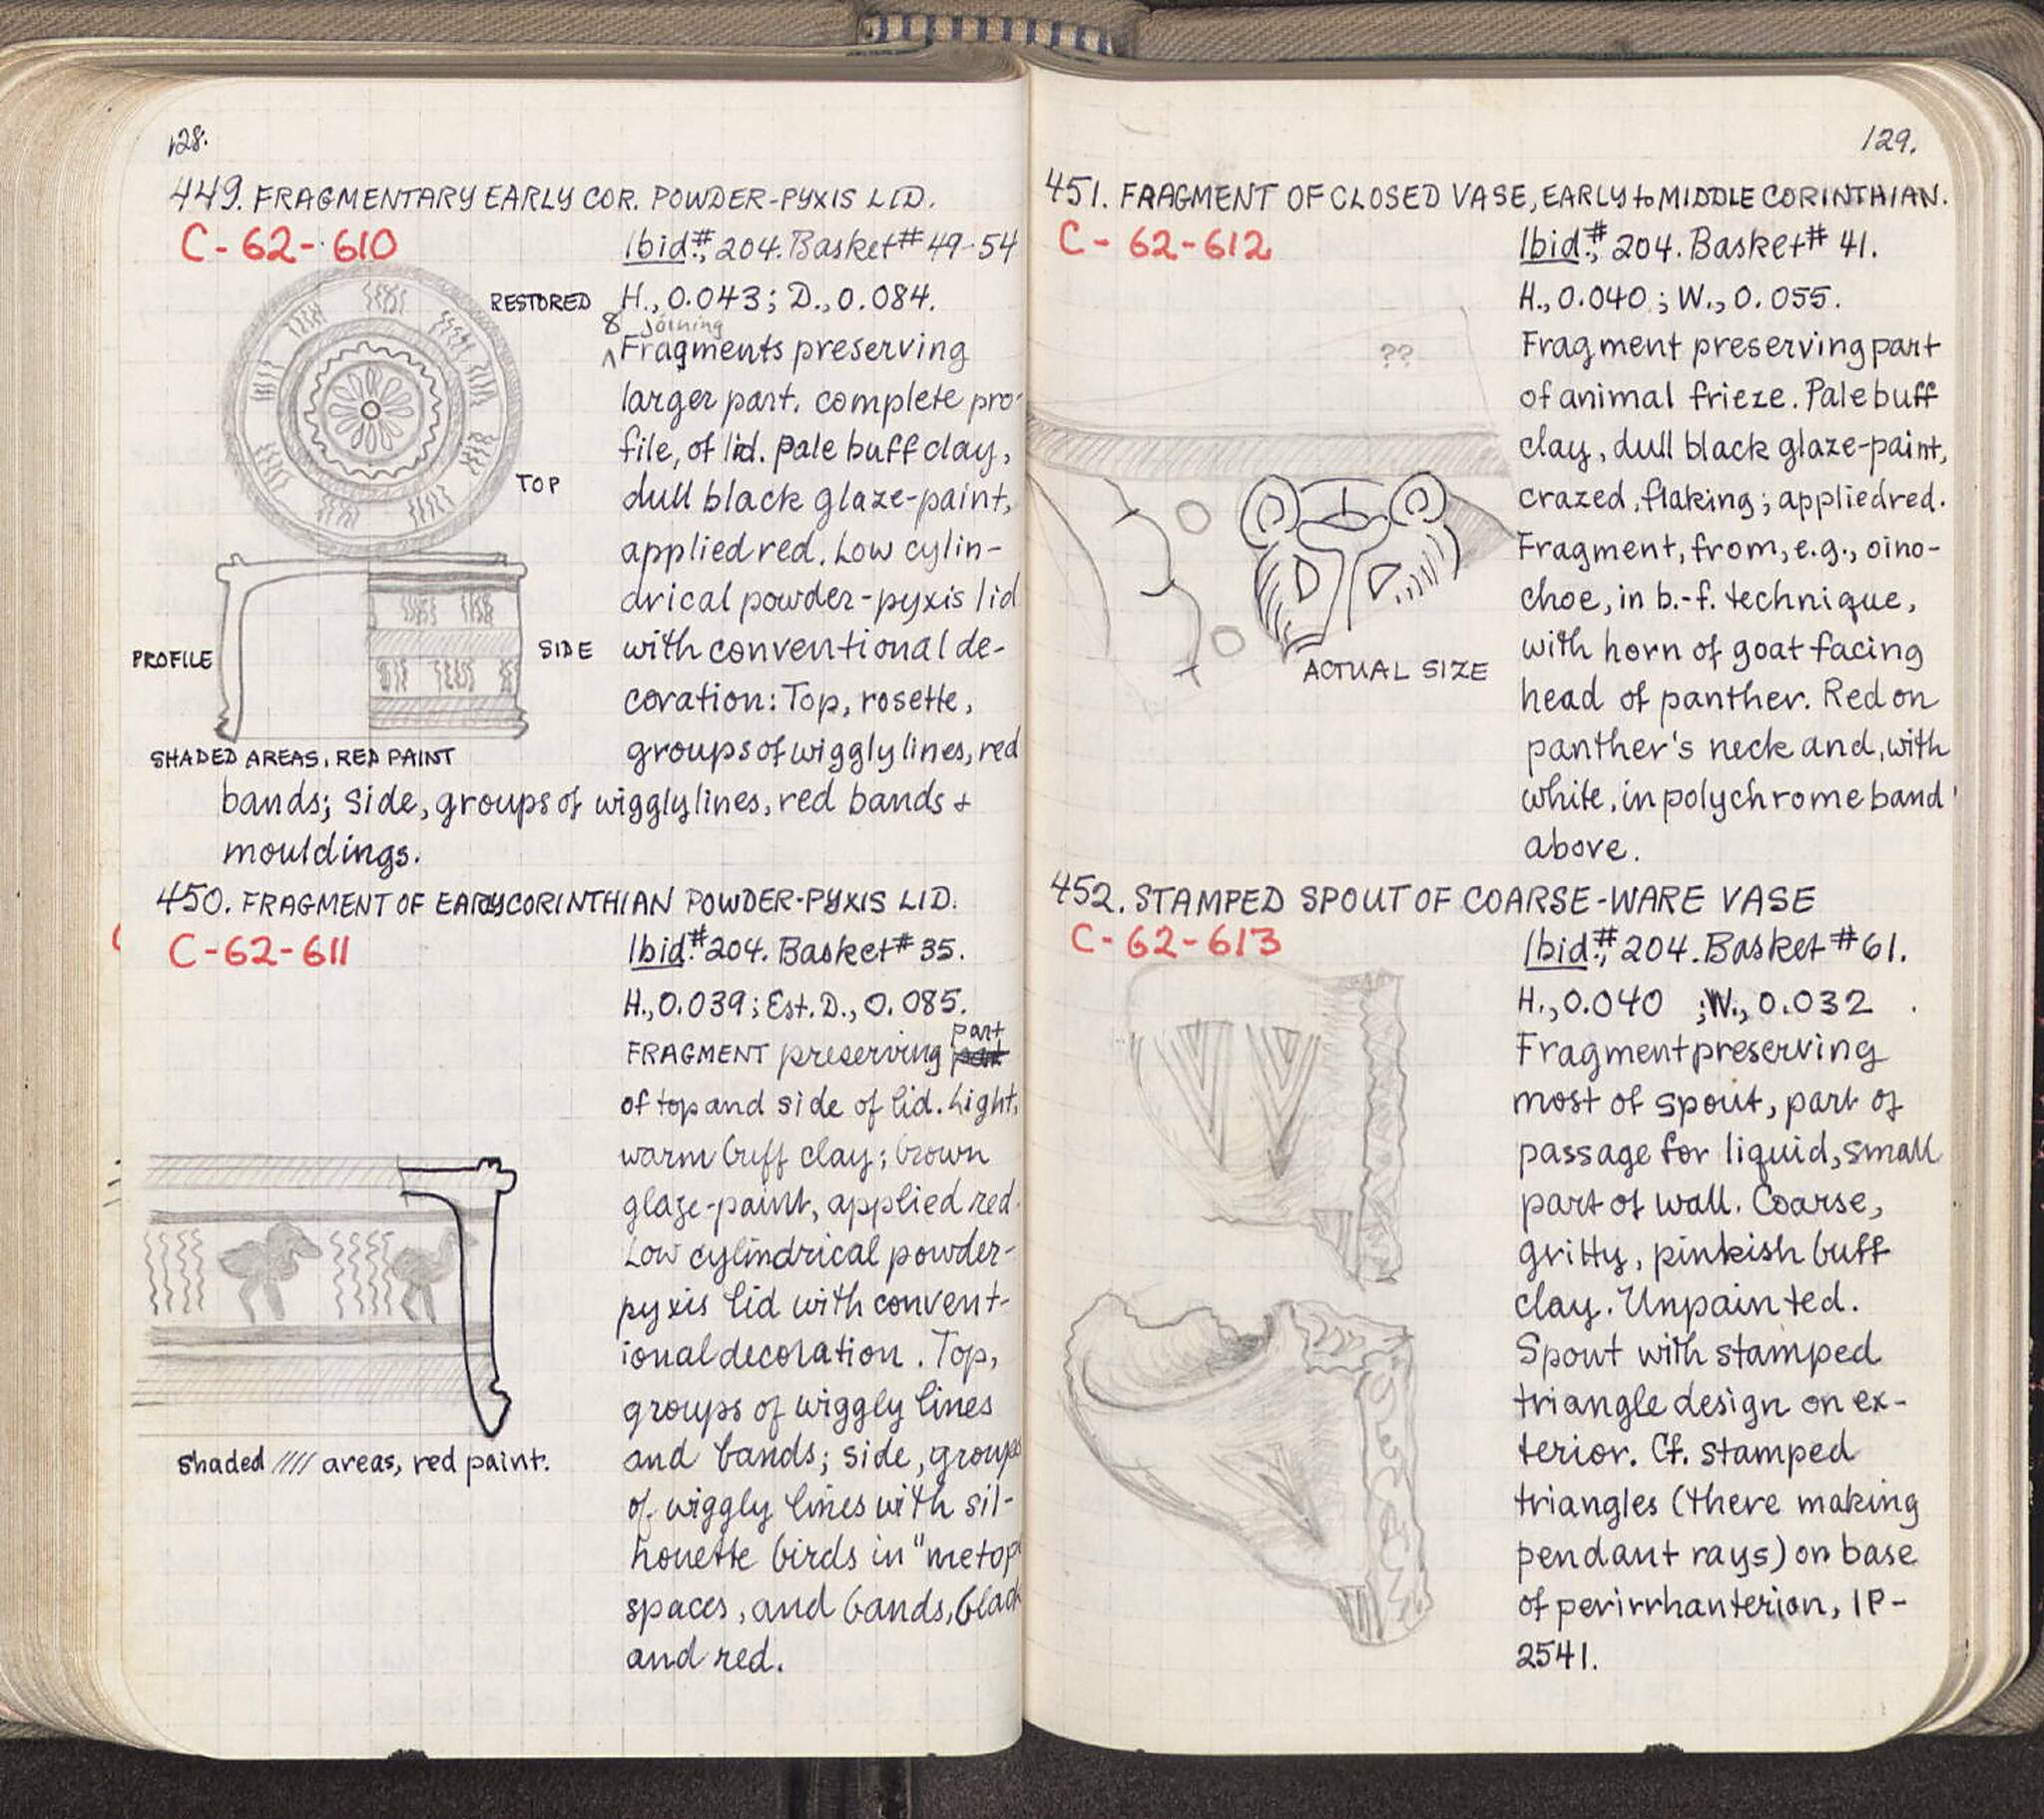 128.
449. FRAGMENTARY EARLY COR. POWDER-PYXIS LID.
C-62-610
Ibid., #204. Basket #49-54
RESTORED
H., 0.043; D., 0.084.
8 joining
Fragments preserving
larger part, complete pro-
file, of lid. Pale buff clay,
TOP
dull black glaze-paint,
applied red. Low cylin-
drical powder-pyxis lid
PROFILE
SIDE
with conventional de-
coration: Top, rosette,
groups of wiggly lines, red
SHADED AREAS, RED PAINT
bands; side, groups of wiggly lines, red bands +
mouldings.
450. FRAGMENT OF EARLY CORINTHIAN POWDER-PYXIS LID.
C-62-611
Ibid. #204. Basket #35.
H., 0.039; Est. D., 0.085.
part
FRAGMENT preserving part
of top and side of lid. Light,
warm buff clay; brown
glaze-paint, applied red.
Low cylindrical powder-
pyxis lid with convent-
ional decoration. Top,
groups of wiggly lines
and bands; side, groups
shaded //// areas, red paint.
of wiggly lines with sil-
houette birds in "metop
spaces, and bands, black
and red.
129.
451. FRAGMENT OF CLOSED VASE, EARLY to MIDDLE CORINTHIAN.
C-62-612
Ibid., #204. Basket #41.
H., 0.040; W., 0.055.
??
Fragment preserving part
of animal frieze. Pale buff
clay, dull black glaze-paint,
crazed, flaking; applied red.
Fragment, from, e.g., oino-
choe, in b.-f. technique,
with horn of goat facing
ACTUAL SIZE
head of panther. Red on
panther's neck and, with
white, in polychrome band
above.
452. STAMPED SPOUT OF COARSE-WARE VASE
C-62-613
Ibid., #204. Basket #61.
H., 0.040 ; W., 0.032 .
Fragment preserving
most of spout, part of
passage for liquid, small
part of wall. Coarse,
gritty, pinkish buff
clay. Unpainted.
Spout with stamped
triangle design on ex-
terior. Cf. stamped
triangles (there making
pendant rays) on base
of perirrhanterion, IP-
2541.